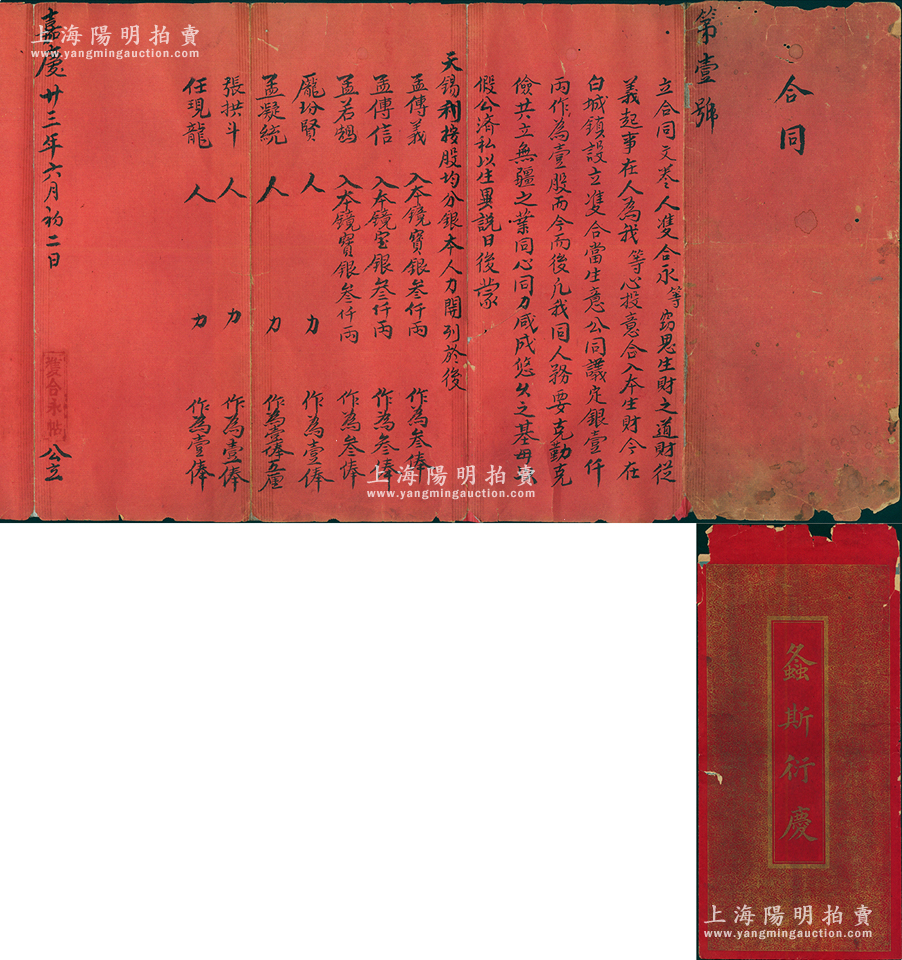 合同
第壹號
立合同文券人雙合永等竊思生財之道財從
義起事在人為我等心投意合入本生財今在
白城鎮設立雙合當生意公同議定銀壹仟
兩作為壹股而今而後凡我同人務要克勤克
儉共立無疆之業同心同力咸成悠久之基毋
假公濟私以生異說日後蒙
天錫利按股均分銀本人力開列於後
孟傳義 入本鏡寶銀叁仟兩 作為叁俸
孟傳信 入本鏡寶銀叁仟兩 作為叁俸
孟若鶴 入本鏡寶銀叁仟兩 作為叁俸
龐賢 人力 作為壹俸
孟凝統 人力 作為壹俸五厘
張拱斗 人力 作為壹俸
任現龍 人力 作為壹俸
嘉慶廿三年六月初二日 雙合永帖 公立
螽斯衍慶
上海陽明拍賣
www.yangmingauction.com
上海陽明拍賣
www.yangmingauction.com
上海陽明拍賣
www.yangmingauction.com
上海陽明拍賣
www.yangmingauction.com